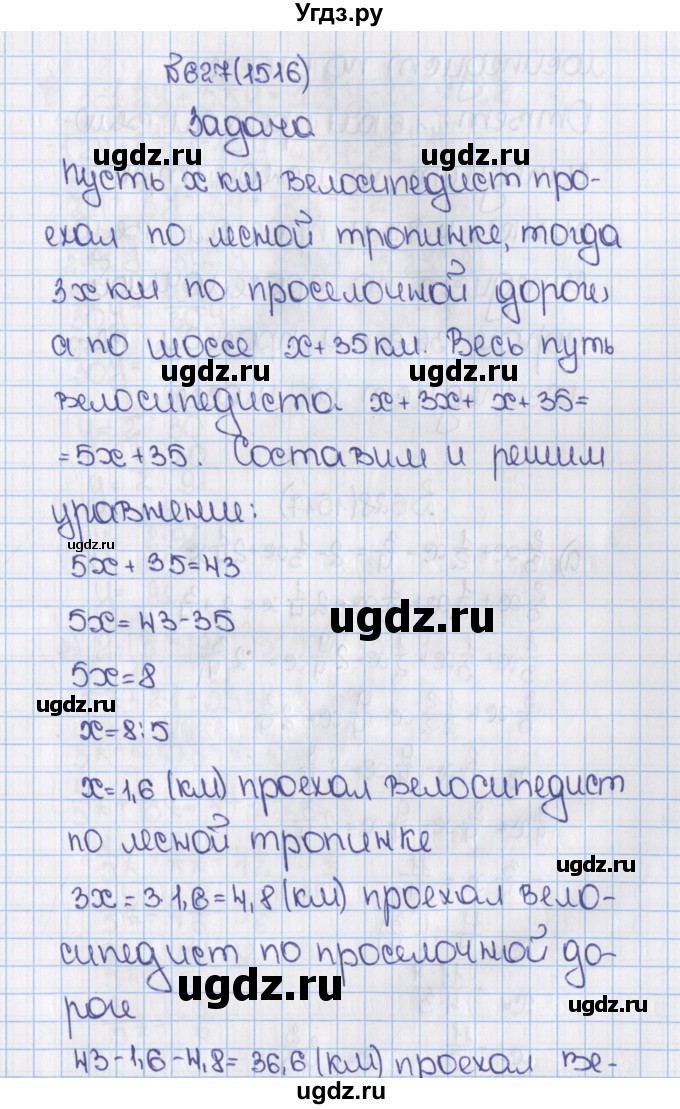 Угдз.ру
В 627(1516)
Задача
ugdz.ru ugdz.ru
Пусть x км велосипедист про-
ехал по лесной тропинке, тогда
3x км по проселочной дороге,
а по шоссе x+35 км. Весь путь
ugdz.ru ugdz.ru
велосипедиста x+3x+ x+35=
=5x+35. Составим и решим
уравнение:
ugdz.ru
5x+35=43
5x=43-35
ugdz.ru
5x=8
ugdz.ru
x=8:5
x=1,6 (км) проехал велосипедист
по лесной тропинке
ugdz.ru
3x=3·1,6=4,8 (км) проехал вело-
сипедист по проселочной до-
ugdz.ru ugdz.ru
роге
43-1,6-4,8=36,6 (км) проехал ве-
ugdz.ru